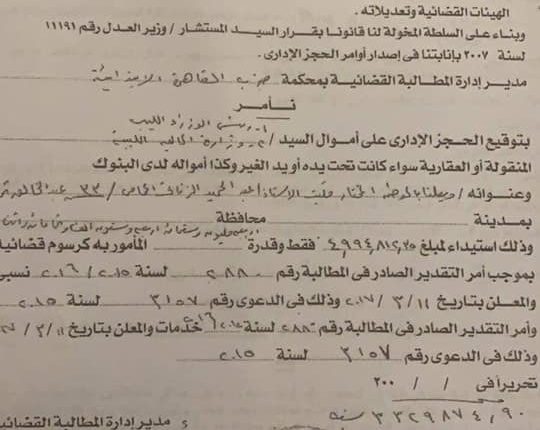 الهيئات القضائية وتعديلاته .
وبناء على السلطة المخولة لنا قانونا بقرار السيد المستشار / وزير العدل رقم ١١١٩١
لسنة ٢٠٠٧ بإنابتنا في إصدار أوامر الحجز الإدارى .
مدير إدارة المطالبة القضائية بمحكمة جنوب القاهرة الابتدائية
نــأمـر
١- رئيس الوزراء الليبى
بتوقيع الحجز الإدارى على أموال السيد / ٢- وزارة المالية الليبية
المنقولة أو العقارية سواء كانت تحت يده أو يد الغير وكذا أمواله لدى البنوك
وعنوانه / المختار مكتب الاستاذ عبد الحميد المحامى / ٣٣ عبد الخالق ثروت
بمدينة محافظة
وذلك استيداء لمبلغ ٤,٩٩٤,٨١٢,٣٥ فقط وقدرة المأمور به كرسوم قضائية
بموجب أمر التقدير الصادر فى المطالبة رقم ٢٨٨٠ لسنة ٢٠١٥ / ٢٠١٦ نسبى
والمعلن بتاريخ ١١ / ٣ / ٢٠١٧ وذلك فى الدعوى رقم ٣١٥٧ لسنة ٢٠١٥
وأمر التقدير الصادر فى المطالبة رقم ٢٨٨٠ لسنة ٢٠١٥ / ٢٠١٦ خدمات والمعلن بتاريخ ١١ / ٣ /
وذلك فى الدعوى رقم ٣١٥٧ لسنة ٢٠١٥
تحريراً فى / / ٢٠٠
٣٣٢٩٨٧٤,٩٠
مدير إدارة المطالبة القضائية